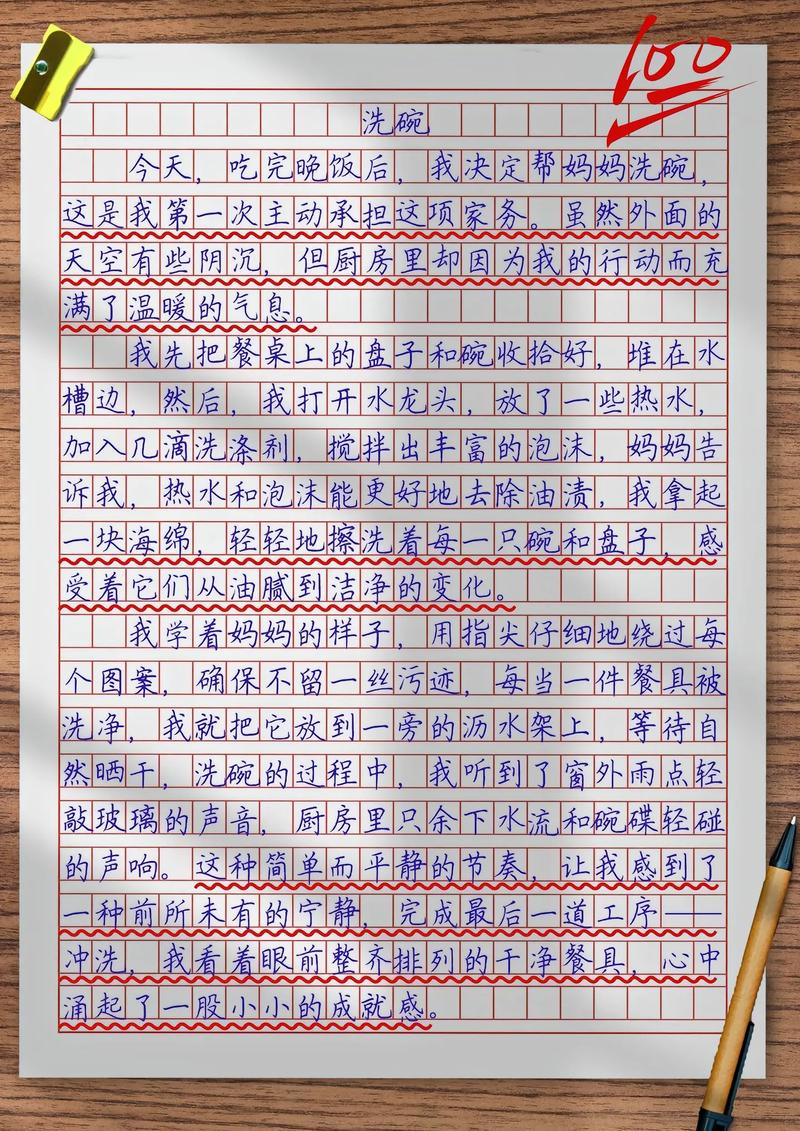 100
洗碗
今天，吃完晚饭后，我决定帮妈妈洗碗，
这是我第一次主动承担这项家务。虽然外面的
天空有些阴沉，但厨房里却因为我的行动而充
满了温暖的气息。
我先把餐桌上的盘子和碗收拾好，堆在水
槽边，然后，我打开水龙头，放了一些热水，
加入几滴洗涤剂，搅拌出丰富的泡沫，妈妈告
诉我，热水和泡沫能更好地去除油渍，我拿起
一块海绵，轻轻地擦洗着每一只碗和盘子，感
受着它们从油腻到洁净的变化。
我学着妈妈的样子，用指尖仔细地绕过每
个图案，确保不留一丝污迹，每当一件餐具被
洗净，我就把它放到一旁的沥水架上，等待自
然晒干，洗碗的过程中，我听到了窗外雨点轻
敲玻璃的声音，厨房里只余下水流和碗碟轻碰
的声响。这种简单而平静的节奏，让我感到了
一种前所未有的宁静，完成最后一道工序——
冲洗，我看着眼前整齐排列的干净餐具，心中
涌起了一股小小的成就感。